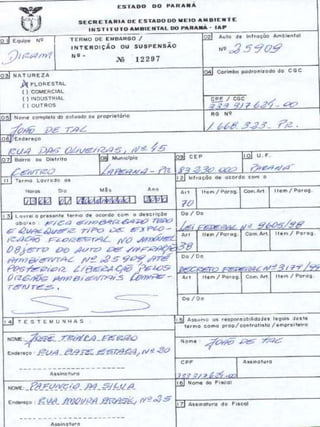 ESTADO DO PARANÁ
SECRETARIA DE ESTADO DO MEIO AMBIENTE
INSTITUTO AMBIENTAL DO PARANÁ - IAP
01 Equipe Nº
DIRAM
TERMO DE EMBARGO /
INTERDIÇÃO OU SUSPENSÃO
Nº - Nº 12297
02 Auto de Infração Ambiental
Nº 25909
03 NATUREZA
FLORESTAL
( ) COMERCIAL
( ) INDUSTRIAL
( ) OUTROS
04 Carimbo padronizado do CGC
CPF / CGC
RG Nº
1.668.323. PR.
05 Nome completo do autuado ou proprietário
JOÃO DE TAL
06 Endereço
RUA DAS OLIVEIRAS, Nº 45
07 Bairro ou Distrito
CENTRO
08 Município
09 CEP
83.230.000
10 U.F.
PARANÁ
11 Termo Lavrado às
Horas Dia Mês Ano
12 Infração de acordo com o
Art Item / Parag. Com. Art. Item / Parag.
70
Do / Da
LEI FEDERAL Nº 9605/98
13 Lavrei o presente termo de acordo com a descrição
abaixo: FICA EMBARGADO TODO
E QUALQUER TIPO DE EXPLO-
RAÇÃO FLORESTAL NO IMÓVEL
OBJETO DO AUTO DE INFRAÇÃO
AMBIENTAL Nº 25909 ATÉ
POSTERIOR LIBERAÇÃO PELOS
ORGÃOS AMBIENTAIS COMPE-
TENTES.
Art Item / Parag. Com. Art. Item / Parag.
38
Do / Da
DECRETO FEDERAL Nº 3179/99
Art Item / Parag. Com. Art. Item / Parag.
Do / Da
14 TESTEMUNHAS:
NOME:
Endereço: RUA Nº 20
Assinatura
NOME:
Endereço: RUA Nº 25
Assinatura
15 Assumo as responsabilidades legais deste
termo como prop./contratista/empreiteiro
Nome JOÃO DE TAL
CPF Assinatura
16 Nome do Fiscal
17 Assinatura do Fiscal